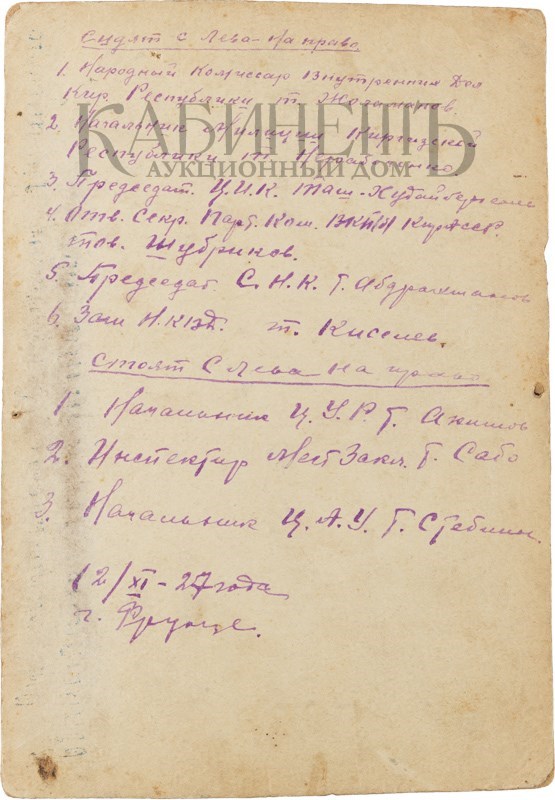 Сидят с лева-направо
1. Народный Комиссар Внутренних Дел
Кир. Республики т.
КАБИНЕТЪ
АУКЦИОННЫЙ ДОМ
2. Начальник Милиции Киргизской
Республики т.
3. Председат. Ц.И.К. Таш-Худайбергенов
4. Отв. Секр. Парт. Ком. Кирассср.
тов. Шубриков.
5. Председат С.Н.К. Т. Абдрахманов
6. Зам Н.К. т. Киселев.
Стоят С лева на право
1 Начальник Ц.У.Р. Т.
2. Инспектор Мест Закл. Т. Сабо
3. Начальник Ц.А.У. Т. Стеблин.
12/XI-27 года
г. Фрунзе.